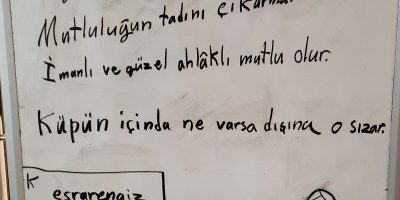 Mutluluğun tadını çıkarma
İmanlı ve güzel ahlâklı mutlu olur.
Küpün içinda ne varsa dışına o sızar.
K
esrarengiz